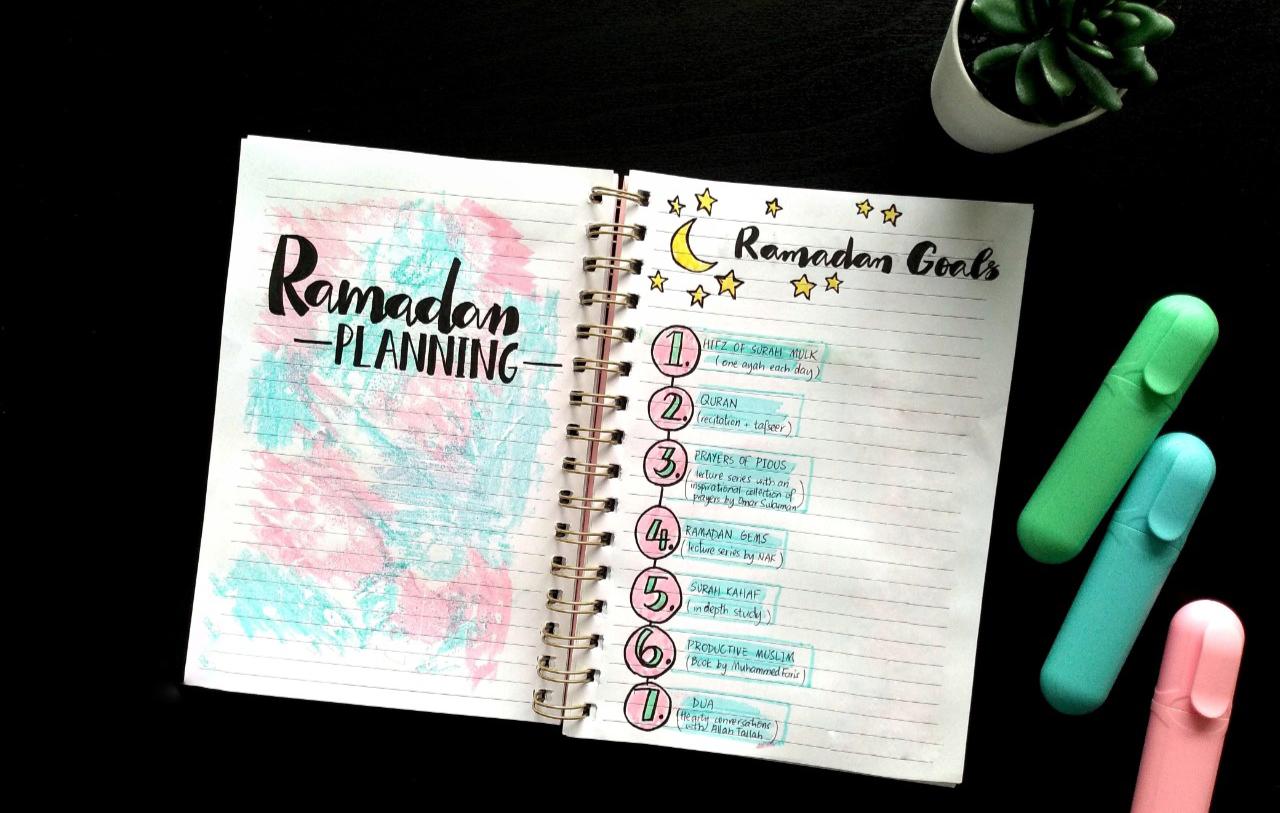 Ramadan
PLANNING
Ramadan Goals
1. HIFZ OF SURAH MULK
(one ayah each day)
2. QURAN
(recitation + tafseer)
3. PRAYERS OF PIOUS
(lecture series with an
inspirational collection of
prayers by Omar Suleiman)
4. RAMADAN GEMS
(lecture series by NAK)
5. SURAH KAHAF
(in depth study)
6. PRODUCTIVE MUSLIM
(Book by Muhammed Faris)
7. DUA
(Hearty conversations
with Allah Tallah)